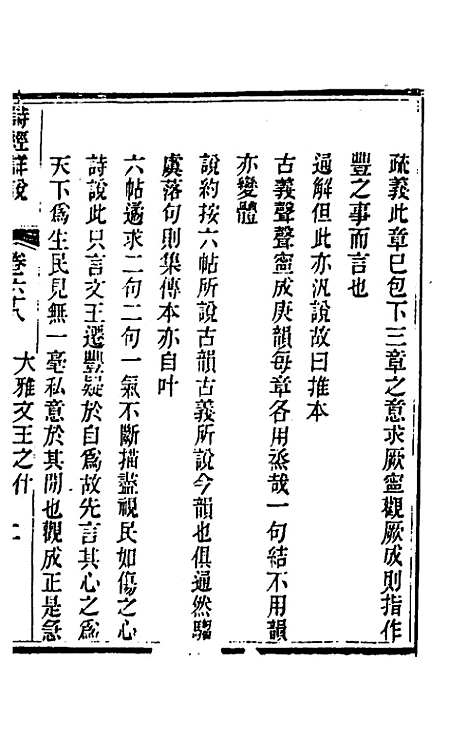 疏義此章已包下三章之意求厥寧觀厥成則指作
豐之事而言也
通解但此亦汎說故曰推本
古義聲聲寧成庚韻每章各用烝哉一句結不用韻
亦變體
說約按六帖所說古韻古義所說今韻也俱通然騶
虞落句則集傳本亦自叶
六帖遹求二句二句一氣不斷描盡視民如傷之心
詩說此只言文王遷豐疑於自為故先言其心之為
天下為生民見無一毫私意於其間也觀成正是急
詩經詳說
卷六十八
大雅文王之什
二